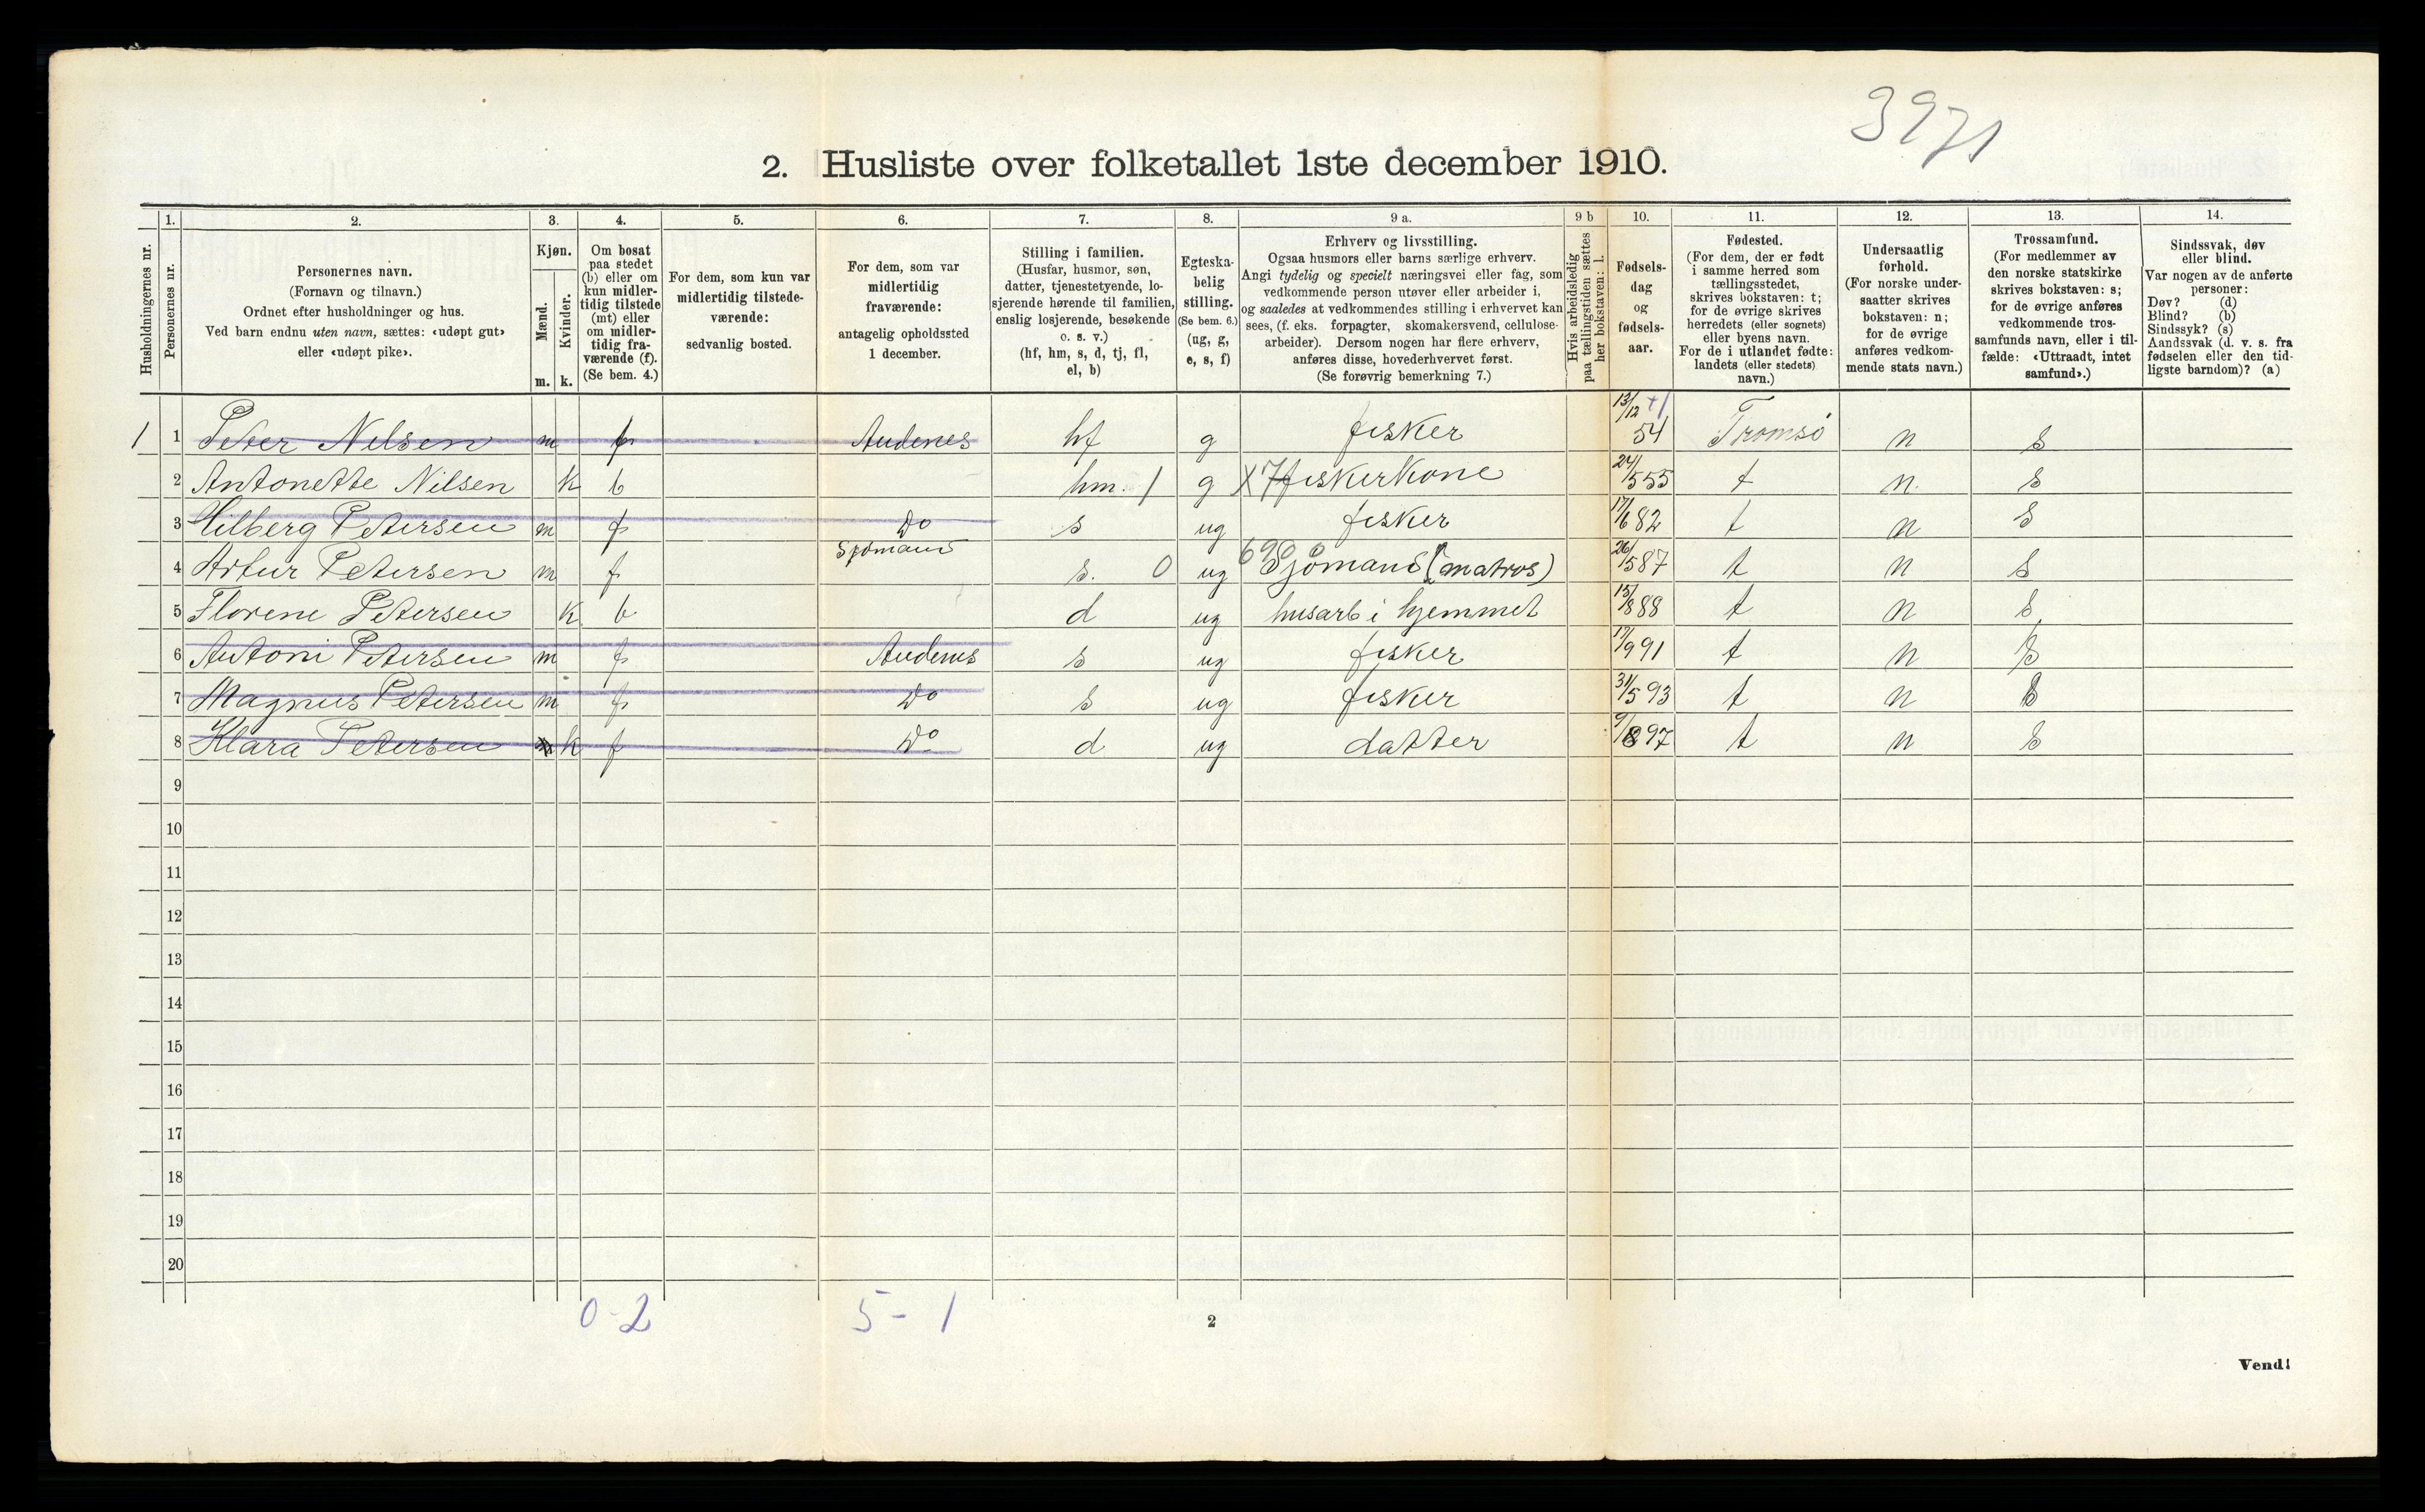 3971
2. Husliste over folketallet 1ste december 1910.
Husholdningernes nr.
1. Personernes nr.
2. Personernes navn.
(Fornavn og tilnavn.)
Ordnet efter husholdninger og hus.
Ved barn endnu uten navn, sættes: «udøpt gut»
eller «udøpt pike».
3. Kjøn.
Mænd. m.
Kvinder. k.
4. Om bosat
paa stedet
(b) eller om
kun midler-
tidig tilstede
(mt) eller
om midler-
tidig fra-
værende (f).
(Se bem. 4.)
5. For dem, som kun var
midlertidig tilstede-
værende:
sedvanlig bosted.
6. For dem, som var
midlertidig
fraværende:
antagelig opholdssted
1 december.
7. Stilling i familien.
(Husfar, husmor, søn,
datter, tjenestetyende, lo-
sjerende hørende til familien,
enslig losjerende, besøkende
o. s. v.)
(hf, hm, s, d, tj, fl,
el, b)
8. Egteska-
belig
stilling.
(Se bem. 6.)
(ug, g,
e, s, f)
9 a. Erhverv og livsstilling.
Ogsaa husmors eller barns særlige erhverv.
Angi tydelig og specielt næringsvei eller fag, som
vedkommende person utøver eller arbeider i,
og saaledes at vedkommendes stilling i erhvervet kan
sees, (f. eks. forpagter, skomakersvend, cellulose-
arbeider). Dersom nogen har flere erhverv,
anføres disse, hovederhvervet først.
(Se forøvrig bemerkning 7.)
9 b Hvis arbeidsledig
paa tællingstiden sættes
her bokstaven: l.
10. Fødsels-
dag
og
fødsels-
aar.
11. Fødested.
(For dem, der er født
i samme herred som
tællingsstedet,
skrives bokstaven: t;
for de øvrige skrives
herredets (eller sognets)
eller byens navn.
For de i utlandet fødte:
landets (eller stedets)
navn.)
12. Undersaatlig
forhold.
(For norske under-
saatter skrives
bokstaven: n;
for de øvrige
anføres vedkom-
mende stats navn.)
13. Trossamfund.
(For medlemmer av
den norske statskirke
skrives bokstaven: s;
for de øvrige anføres
vedkommende tros-
samfunds navn, eller i til-
fælde: «Uttraadt, intet
samfund».)
14. Sindssvak, døv
eller blind.
Var nogen av de anførte
personer:
Døv? (d)
Blind? (b)
Sindssyk? (s)
Aandssvak (d. v. s. fra
fødselen eller den tid-
ligste barndom)? (a)
1 1 Peter Nelsen m f Andenes hf g fisker 13/12 54 Tromsø n s
2 Antonette Nilsen k b hm. 1 g X7 fiskerkone 24/5 55 t n. s
3 Hilberg Petersen m f Do s ug fisker 17/6 82 t n s
4 Artur Petersen m f Sjømand s. 0 ug Sjømand (matros) 26/5 87 t n s
5 Florene Petersen k b d ug husarb i hjemmet 15/8 88 t n s
6 Antoni Petersen m f Andenes s ug fisker 17/9 91 t n s
7 Magnus Petersen m f Do s ug fisker 31/5 93 t n s
8 Klara Petersen k f Do d ug datter 9/8 97 t n s
9
10
11
12
13
14
15
16
17
18
19
20
0-2 5-1
2
Vend!